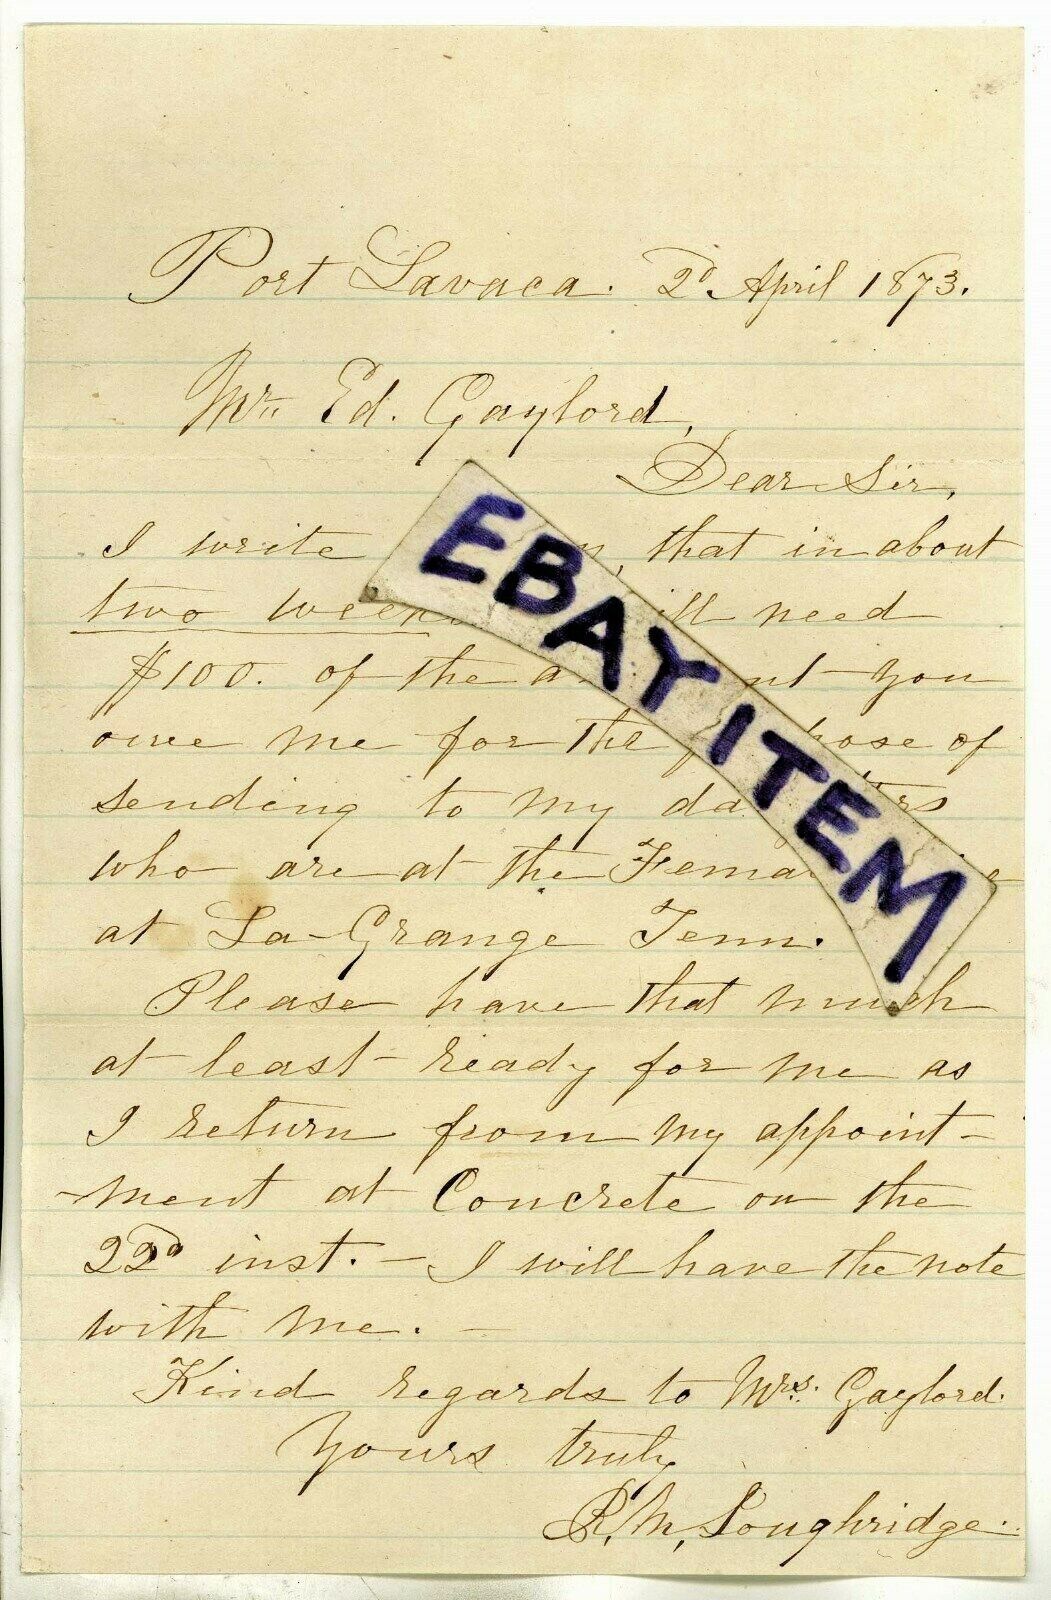 Port Lavaca. 2d. April 1873.
Mr. Ed. Gaylord,
Dear Sir,
I write that in about
two weeks will need
$100. of the amount you
owe me for the purpose of
sending to my daughters
who are at the Female
at La-Grange Tenn.
Please have that much
at least ready for me as
I return from my appoint-
-ment at Concrete on the
22d inst. - I will have the note
with me. -
Kind regards to Mrs. Gaylord.
Yours truly
R. M. Loughridge.
EBAY ITEM